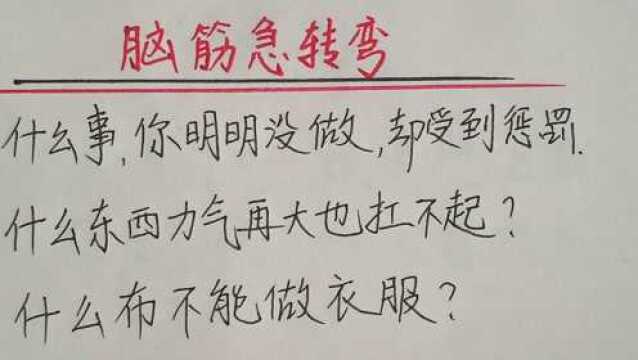 脑筋急转弯
什么事,你明明没做,却受到惩罚.
什么东西力气再大也扛不起?
什么布不能做衣服?